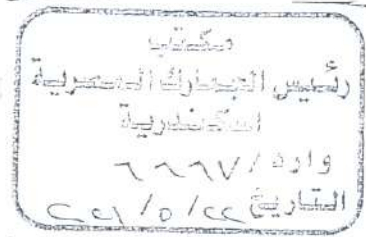 مكتب
رئيس الجمارك المصرية
اسكندرية
وارد /
التاريخ ٢٢ / ٥ / ٢٠٢١